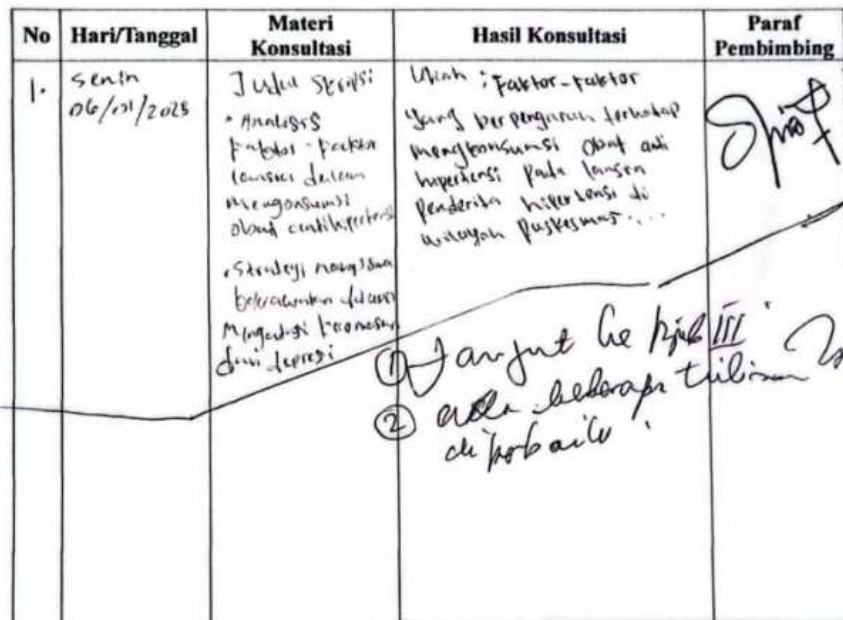 No Hari/Tanggal Materi Konsultasi Hasil Konsultasi Paraf Pembimbing
1.
Senin
06/01/2025
Judul Skripsi
• Analisis
Faktor-Faktor
lansia dalam
mengonsumsi
obat antihipertensi
• Strategi
dan depresi
Ubah : Faktor-Faktor
yang berpengaruh terhadap
mengkonsumsi obat anti
hipertensi pada lansia
penderita hipertensi di
wilayah puskesmas....
① Lanjut ke III
② ada beberapa tulisan